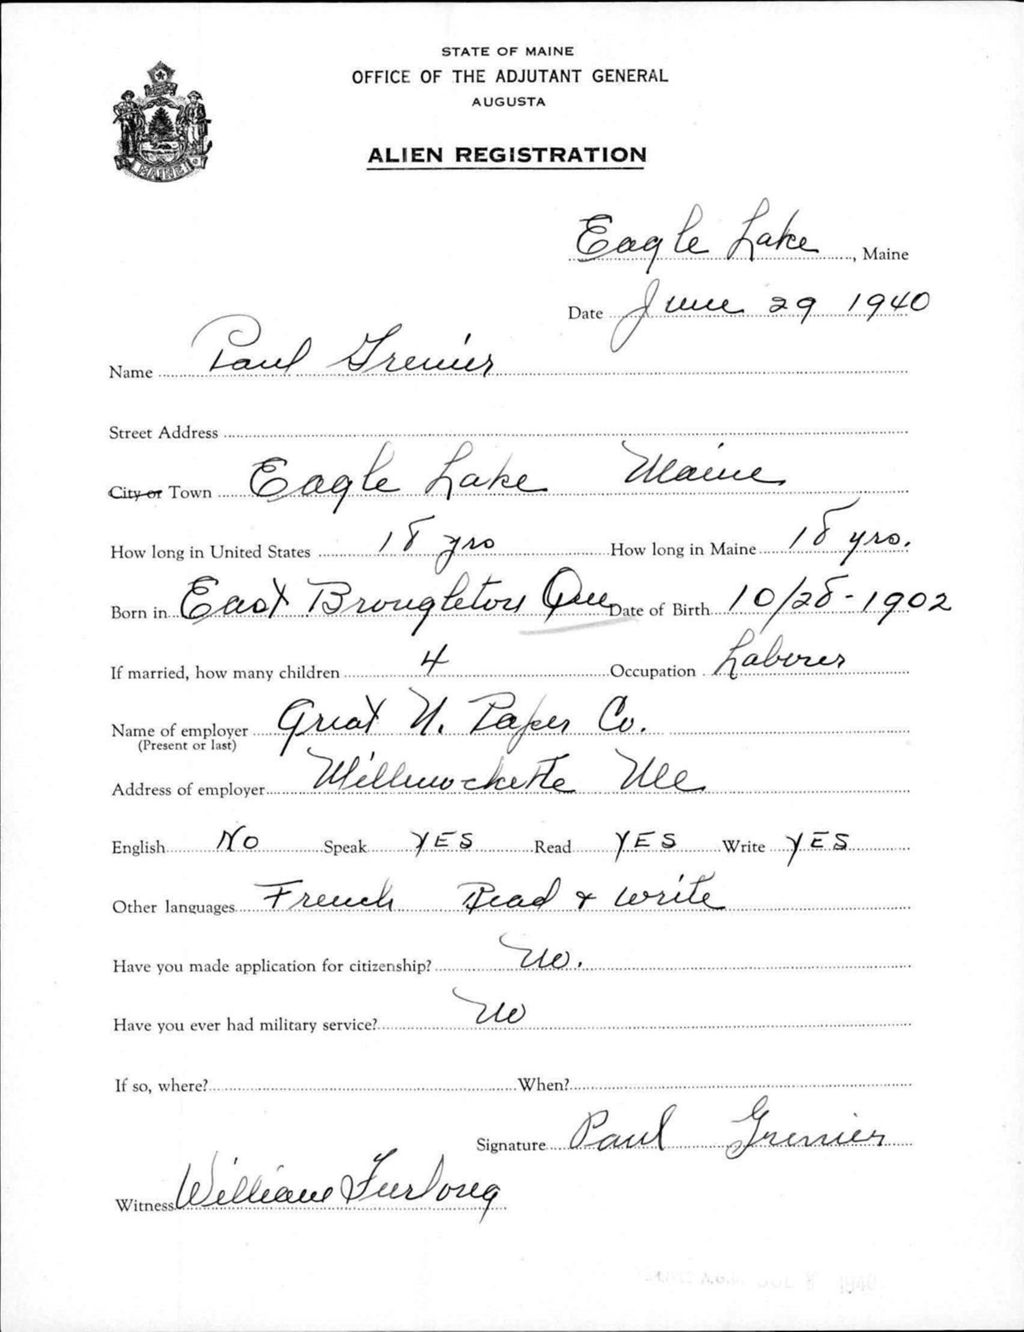 STATE OF MAINE
OFFICE OF THE ADJUTANT GENERAL
AUGUSTA
ALIEN REGISTRATION
MAINE
Eagle Lake, Maine
Date June 29 1940
Name Paul Grenier
Street Address
City or Town Eagle Lake Maine
How long in United States 18 yrs How long in Maine 18 yrs.
Born in East Broughton Que Date of Birth 10/28-1902
If married, how many children 4 Occupation Laborer
Name of employer Great N. Paper Co.
(Present or last)
Address of employer Millinockette Me
English No Speak YES Read YES Write YES
Other languages French Read & write
Have you made application for citizenship? No.
Have you ever had military service? No
If so, where? When?
Signature Paul Grenier
Witness William Furlong